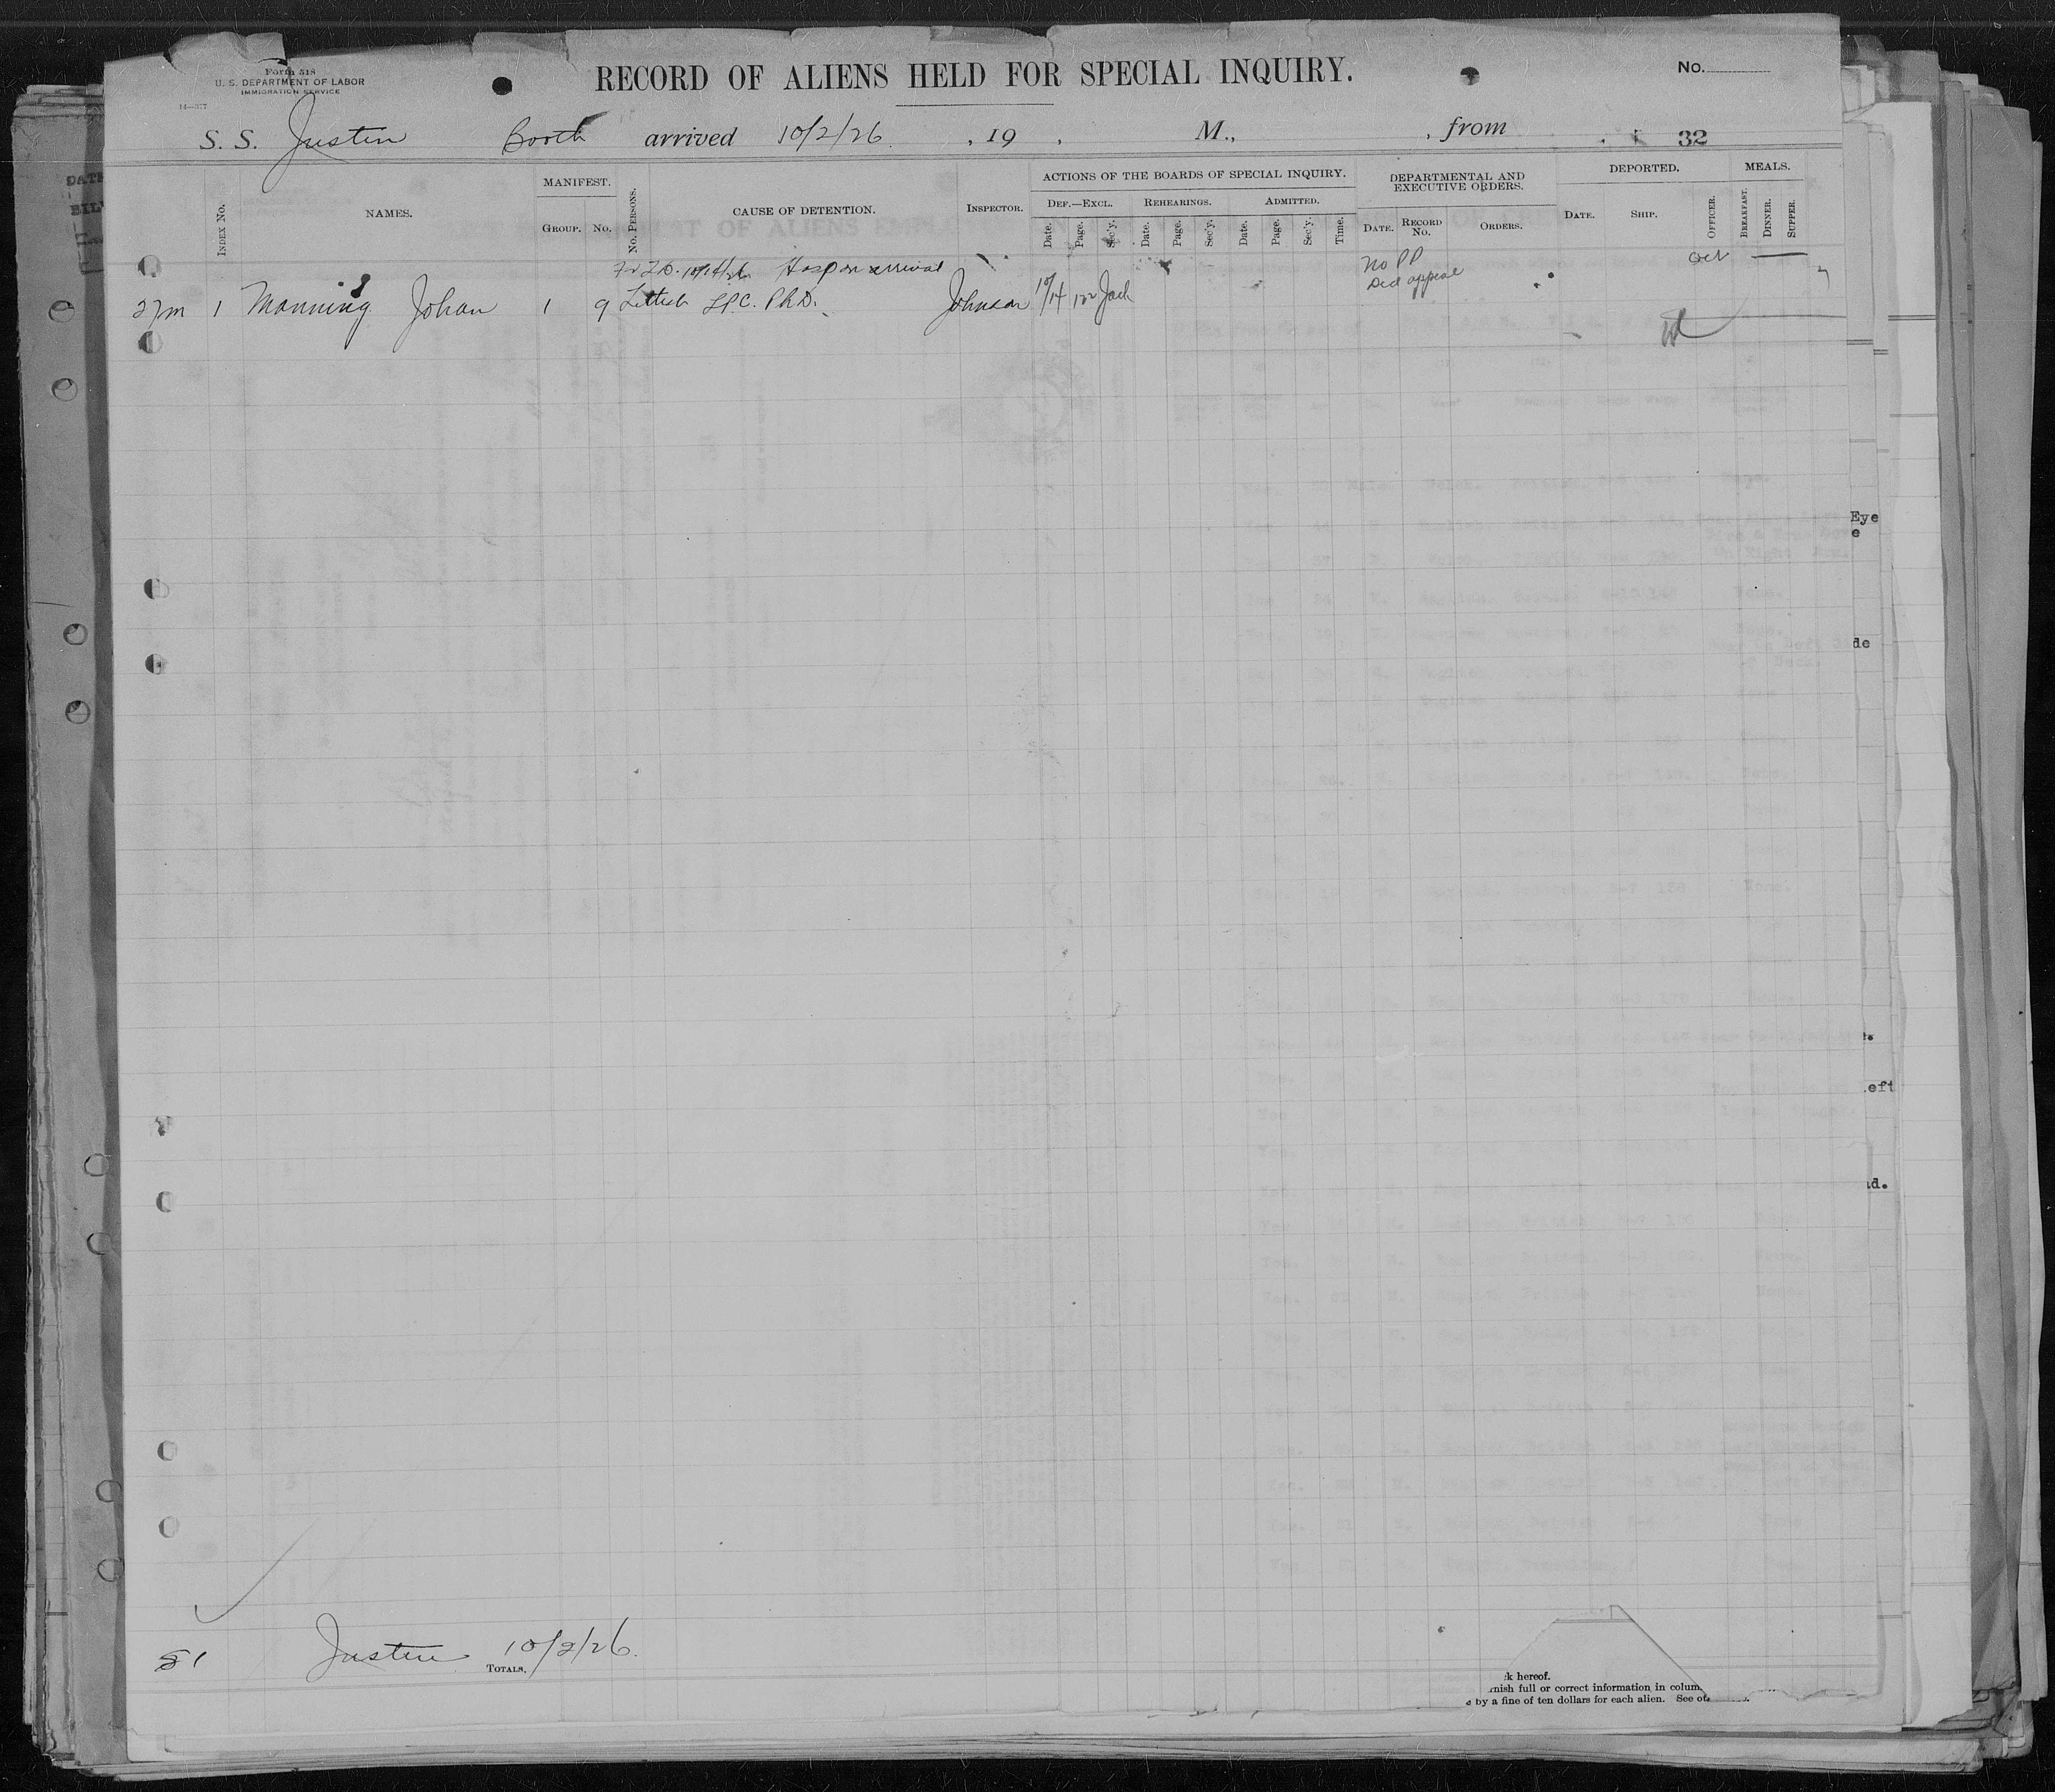 Form 518
U. S. DEPARTMENT OF LABOR
IMMIGRATION SERVICE
14—377
RECORD OF ALIENS HELD FOR SPECIAL INQUIRY.
No.
S. S. Justin Booth arrived 10/2/26 , 19 , M., , from , 32
INDEX No.
NAMES.
MANIFEST.
GROUP. No.
No. PERSONS.
CAUSE OF DETENTION.
INSPECTOR.
ACTIONS OF THE BOARDS OF SPECIAL INQUIRY.
DEF.—EXCL. REHEARINGS. ADMITTED.
Date. Page. Sec'y. Date. Page. Sec'y. Date. Page. Sec'y. Time.
DEPARTMENTAL AND
EXECUTIVE ORDERS.
DATE. RECORD No. ORDERS.
DEPORTED.
DATE. SHIP. OFFICER.
MEALS.
BREAKFAST. DINNER. SUPPER.
10/14/26 Hosp on arrival No PP
Did appeal
27m 1 Manning Johan 1 9 Lettish LPC. Ph.D. Johnson 10/14 122 Jack
Eye
e
de
eft
d.
Justin 10/2/26
TOTALS,
k hereof.
nish full or correct information in colum
by a fine of ten dollars for each alien. See ot